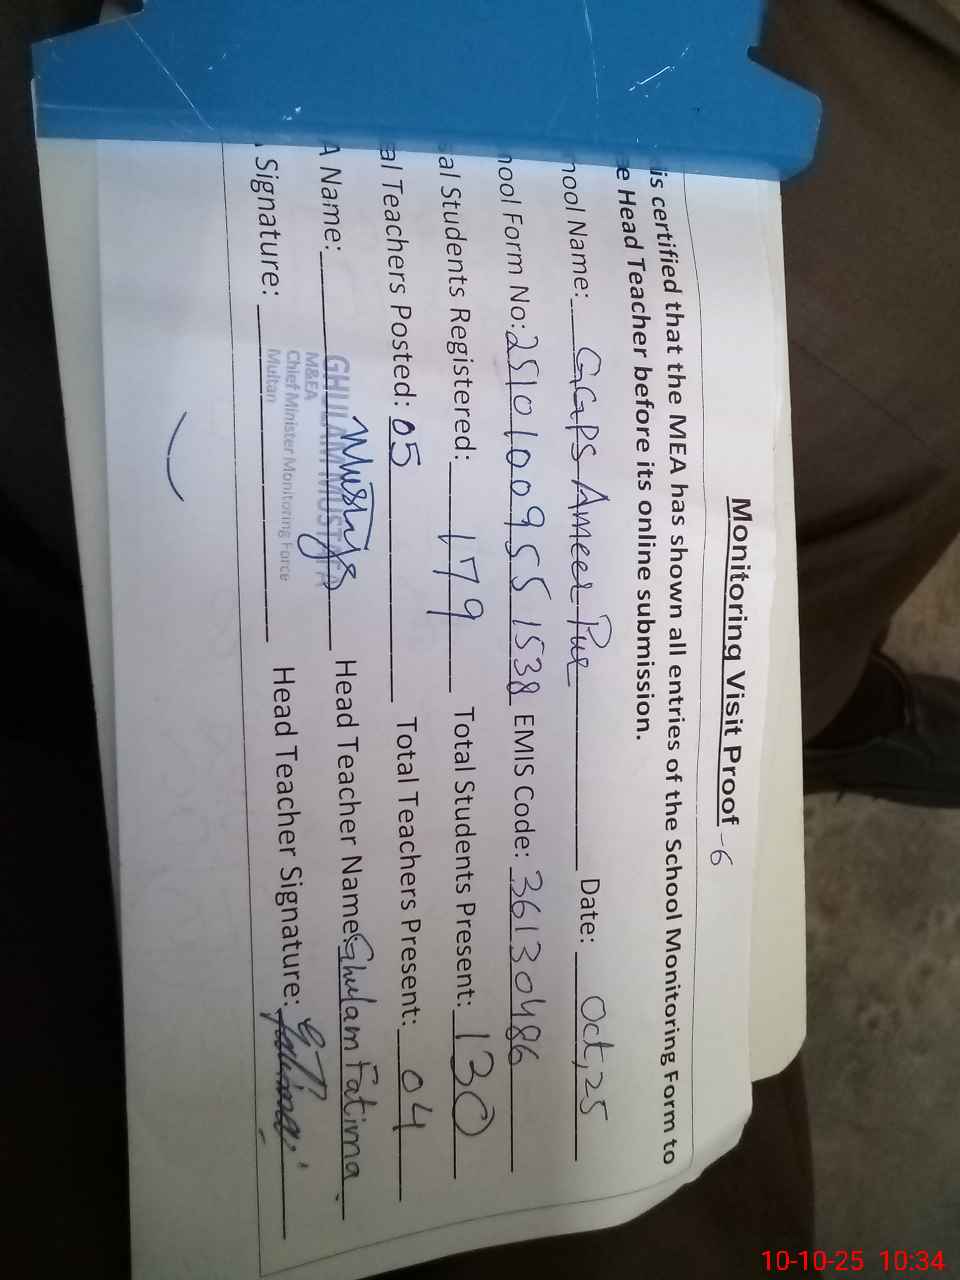 Monitoring Visit Proof -6
is certified that the MEA has shown all entries of the School Monitoring Form to
e Head Teacher before its online submission.
hool Name: GGPS Ameer Pur Date: Oct, 25
hool Form No: 25101009551538 EMIS Code: 36130486
al Students Registered: 179 Total Students Present: 130
al Teachers Posted: 05 Total Teachers Present: 04
A Name: GHULAM MUSTAFA Head Teacher Name: Ghulam Fatima
M&EA
Chief Minister Monitoring Force
Multan
Signature: Head Teacher Signature: Fatima
10-10-25 10:34